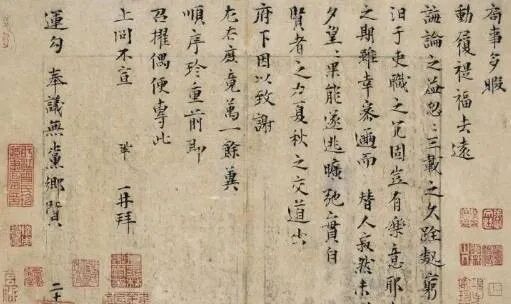 局事多暇
動履禔福去遠
誨論之益忽〻三載之久跧處窮
汨于吏職之冗固豈有樂意耶
之期雖幸密邇而替人寂然未
夕望〻果能遂逃曠弛實自
賢者之力夏秋之交道出
府下因以致謝
左右庶竟萬一餘冀
順序珍重前即
召擢偶便專此
上問不宣 鞏 再拜
運勾奉議無黨鄉賢 二十